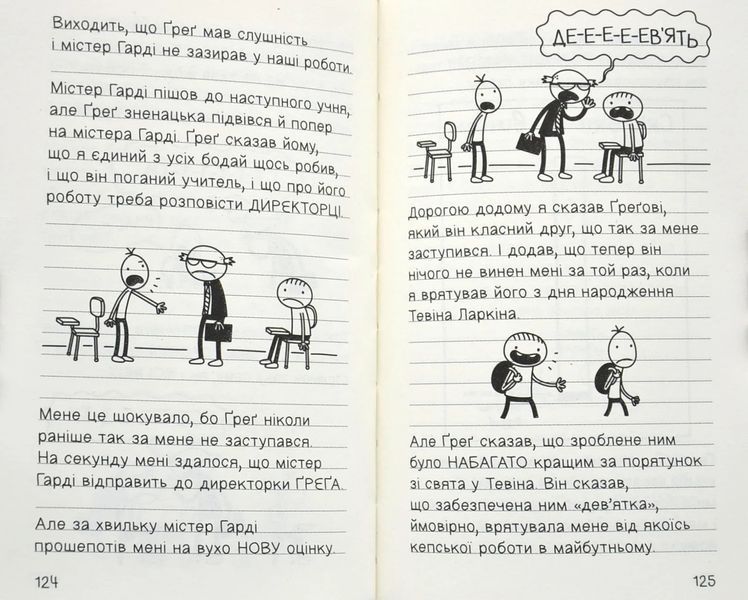 Виходить, що Ґреґ мав слушність
і містер Гарді не зазирав у наші роботи.
Містер Гарді пішов до наступного учня,
але Ґреґ зненацька підвівся й попер
на містера Гарді. Ґреґ сказав йому,
що я єдиний з усіх бодай щось робив,
і що він поганий учитель, і що про його
роботу треба розповісти ДИРЕКТОРЦІ.
Мене це шокувало, бо Ґреґ ніколи
раніше так за мене не заступався.
На секунду мені здалося, що містер
Гарді відправить до директорки ҐРЕҐА.
Але за хвильку містер Гарді
прошепотів мені на вухо НОВУ оцінку.
124
ДЕ-Е-Е-Е-ЕВ'ЯТЬ
Дорогою додому я сказав Ґреґові,
який він класний друг, що так за мене
заступився. І додав, що тепер він
нічого не винен мені за той раз, коли
я врятував його з дня народження
Тевіна Ларкіна.
Але Ґреґ сказав, що зроблене ним
було НАБАГАТО кращим за порятунок
зі свята у Тевіна. Він сказав,
що забезпечена ним «дев'ятка»,
ймовірно, врятувала мене від якоїсь
кепської роботи в майбутньому.
125